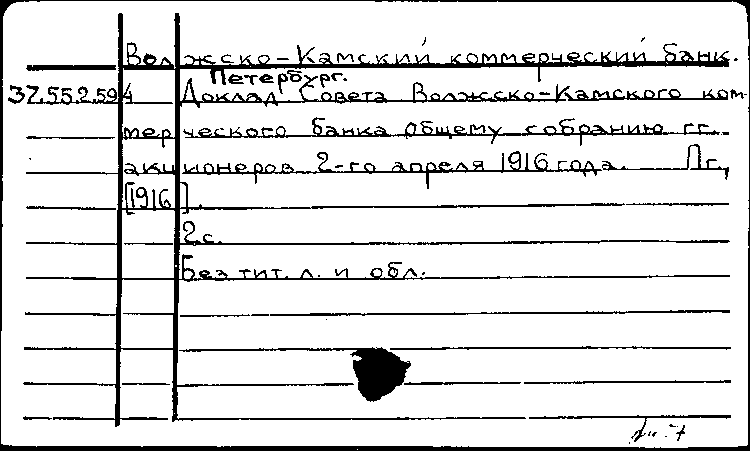 Волжско-Камский коммерческий банк.
Петербург.
37.55.2.594 Доклад Совета Волжско-Камского ком-
мерческого банка общему собранию гг.
акционеров 2-го апреля 1916 года. Пг.,
[1916].
2с.
Без тит. л. и обл.